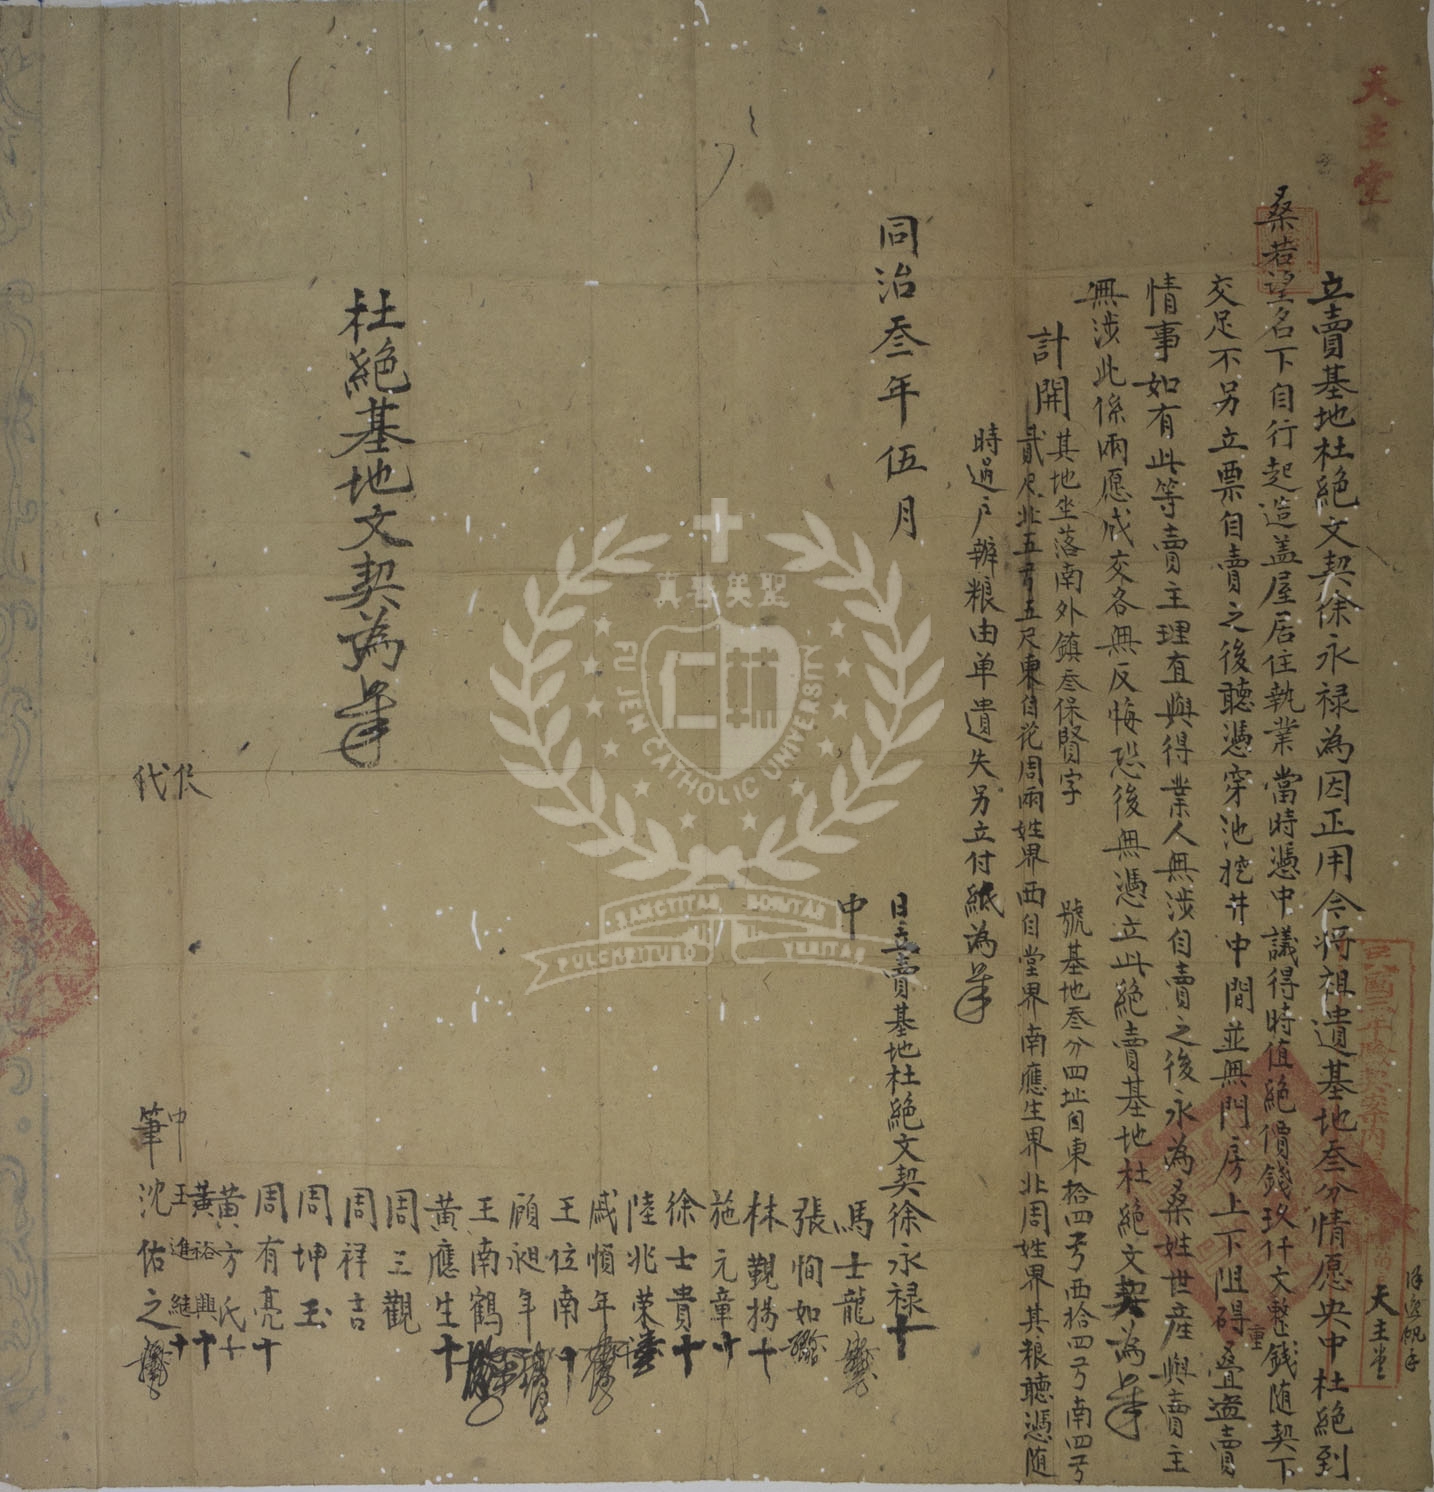 天主堂
立賣基地杜絕文契徐永禄為因正用今將祖遺基地叁分情愿央中杜絕到
桑若望名下自行起造盖屋居住執業當時憑中議得時值絕價錢玖仟文整錢隨契下
交足不另立票自賣之後聽憑穿池挖井中間並無門房上下阻碍重叠盗賣
情事如有此等賣主理直與得業人無涉自賣之後永為桑姓世產與賣主
無涉此係兩愿成交各無反悔恐後無憑立此絕賣基地杜絕文契為㨿
計開 其地坐落南外鎮叁保賢字 號基地叁分四址自東拾四弓西拾四弓南四弓
貳尺北五弓五尺東自花周兩姓界西自堂界南應生界北周姓界其粮聽憑隨
時過户辦粮由单遺失另立付紙為㨿
同治叁年伍月 日立賣基地杜絕文契徐永禄十
中
馬士龍
張恂如
林觀揚十
施元章十
徐士貴十
陸兆荣
戚順年
王位南十
顧昶年
王南鶴
黄應生十
周三觀
周祥吉
周坤玉
周有亮十
黄方氏十
黃裕興十
王進繼十
中
代筆 沈佑之
杜絕基地文契為㨿
天主堂
聖美善真
FU JEN CATHOLIC UNIVERSITY
SANCTITAS BONITAS
PULCHRITUDO VERITAS